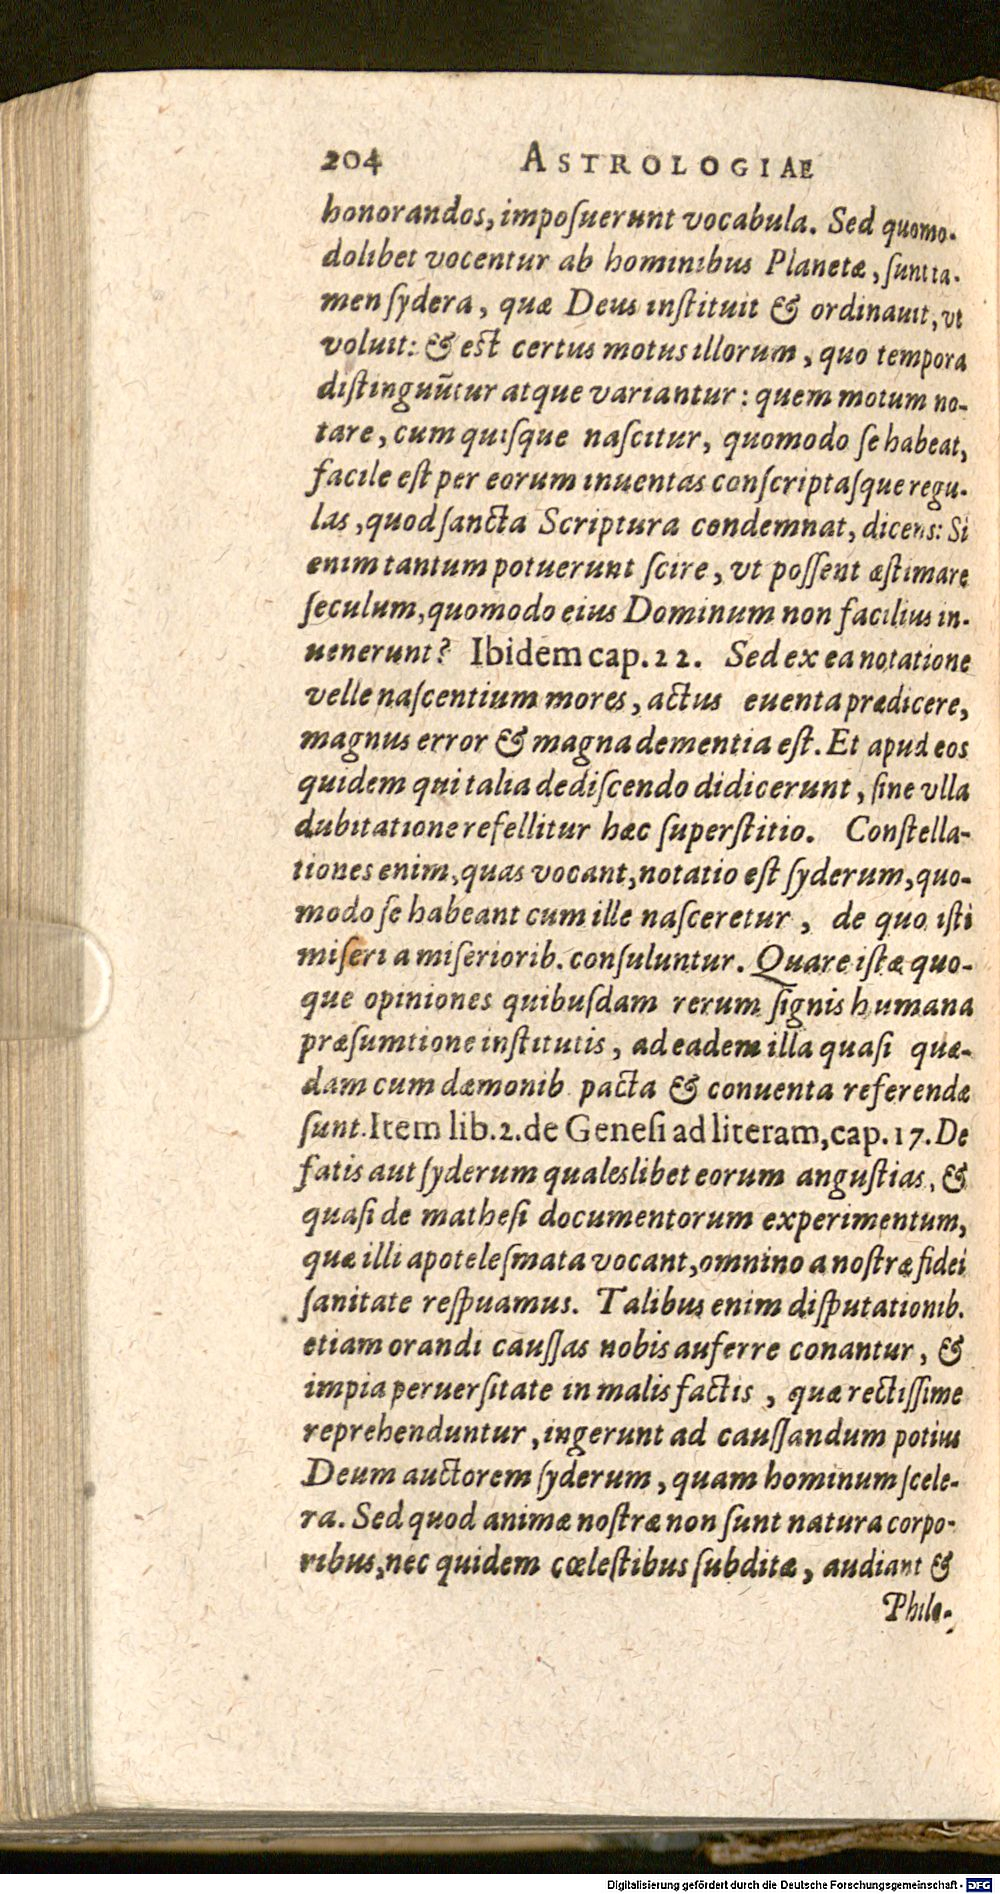 204 ASTROLOGIAE
honorandos, impoſuerunt vocabula. Sed quomo-
dolibet vocentur ab hominibus Planetæ, ſunt ta-
men ſydera, quæ Deus inſtituit & ordinauit, vt
voluit: & eſt certus motus illorum, quo tempora
diſtinguũtur atque variantur: quem motum no-
tare, cum quiſque naſcitur, quomodo ſe habeat,
facile eſt per eorum inuentas conſcriptaſque regu-
las, quod ſancta Scriptura condemnat, dicens: Si
enim tantum potuerunt ſcire, vt poſſent æſtimare
ſeculum, quomodo eius Dominum non facilius in-
uenerunt? Ibidem cap. 22. Sed ex ea notatione
velle naſcentium mores, actus euenta prædicere,
magnus error & magna dementia eſt. Et apud eos
quidem qui talia dediſcendo didicerunt, ſine vlla
dubitatione refellitur hæc ſuperſtitio. Conſtella-
tiones enim, quas vocant, notatio eſt ſyderum, quo-
modo ſe habeant cum ille naſceretur, de quo iſti
miſeri a miſeriorib. conſuluntur. Quare iſtæ quo-
que opiniones quibuſdam rerum ſignis humana
præſumtione inſtitutis, ad eadem illa quaſi quæ-
dam cum dæmonib pacta & conuenta referendæ
ſunt. Item lib. 2. de Geneſi ad literam, cap. 17. De
fatis aut ſyderum qualeslibet eorum anguſtias, &
quaſi de matheſi documentorum experimentum,
quæ illi apoteleſmata vocant, omnino a noſtræ fidei
ſanitate reſpuamus. Talibus enim diſputationib.
etiam orandi cauſſas nobis auferre conantur, &
impia peruerſitate in malis factis, quæ rectiſſime
reprehenduntur, ingerunt ad cauſſandum potius
Deum auctorem ſyderum, quam hominum ſcele-
ra. Sed quod animæ noſtræ non ſunt natura corpo-
ribus, nec quidem cœleſtibus ſubditæ, audiant &
Philo-
Digitalisierung gefördert durch die Deutsche Forschungsgemeinschaft - DFG